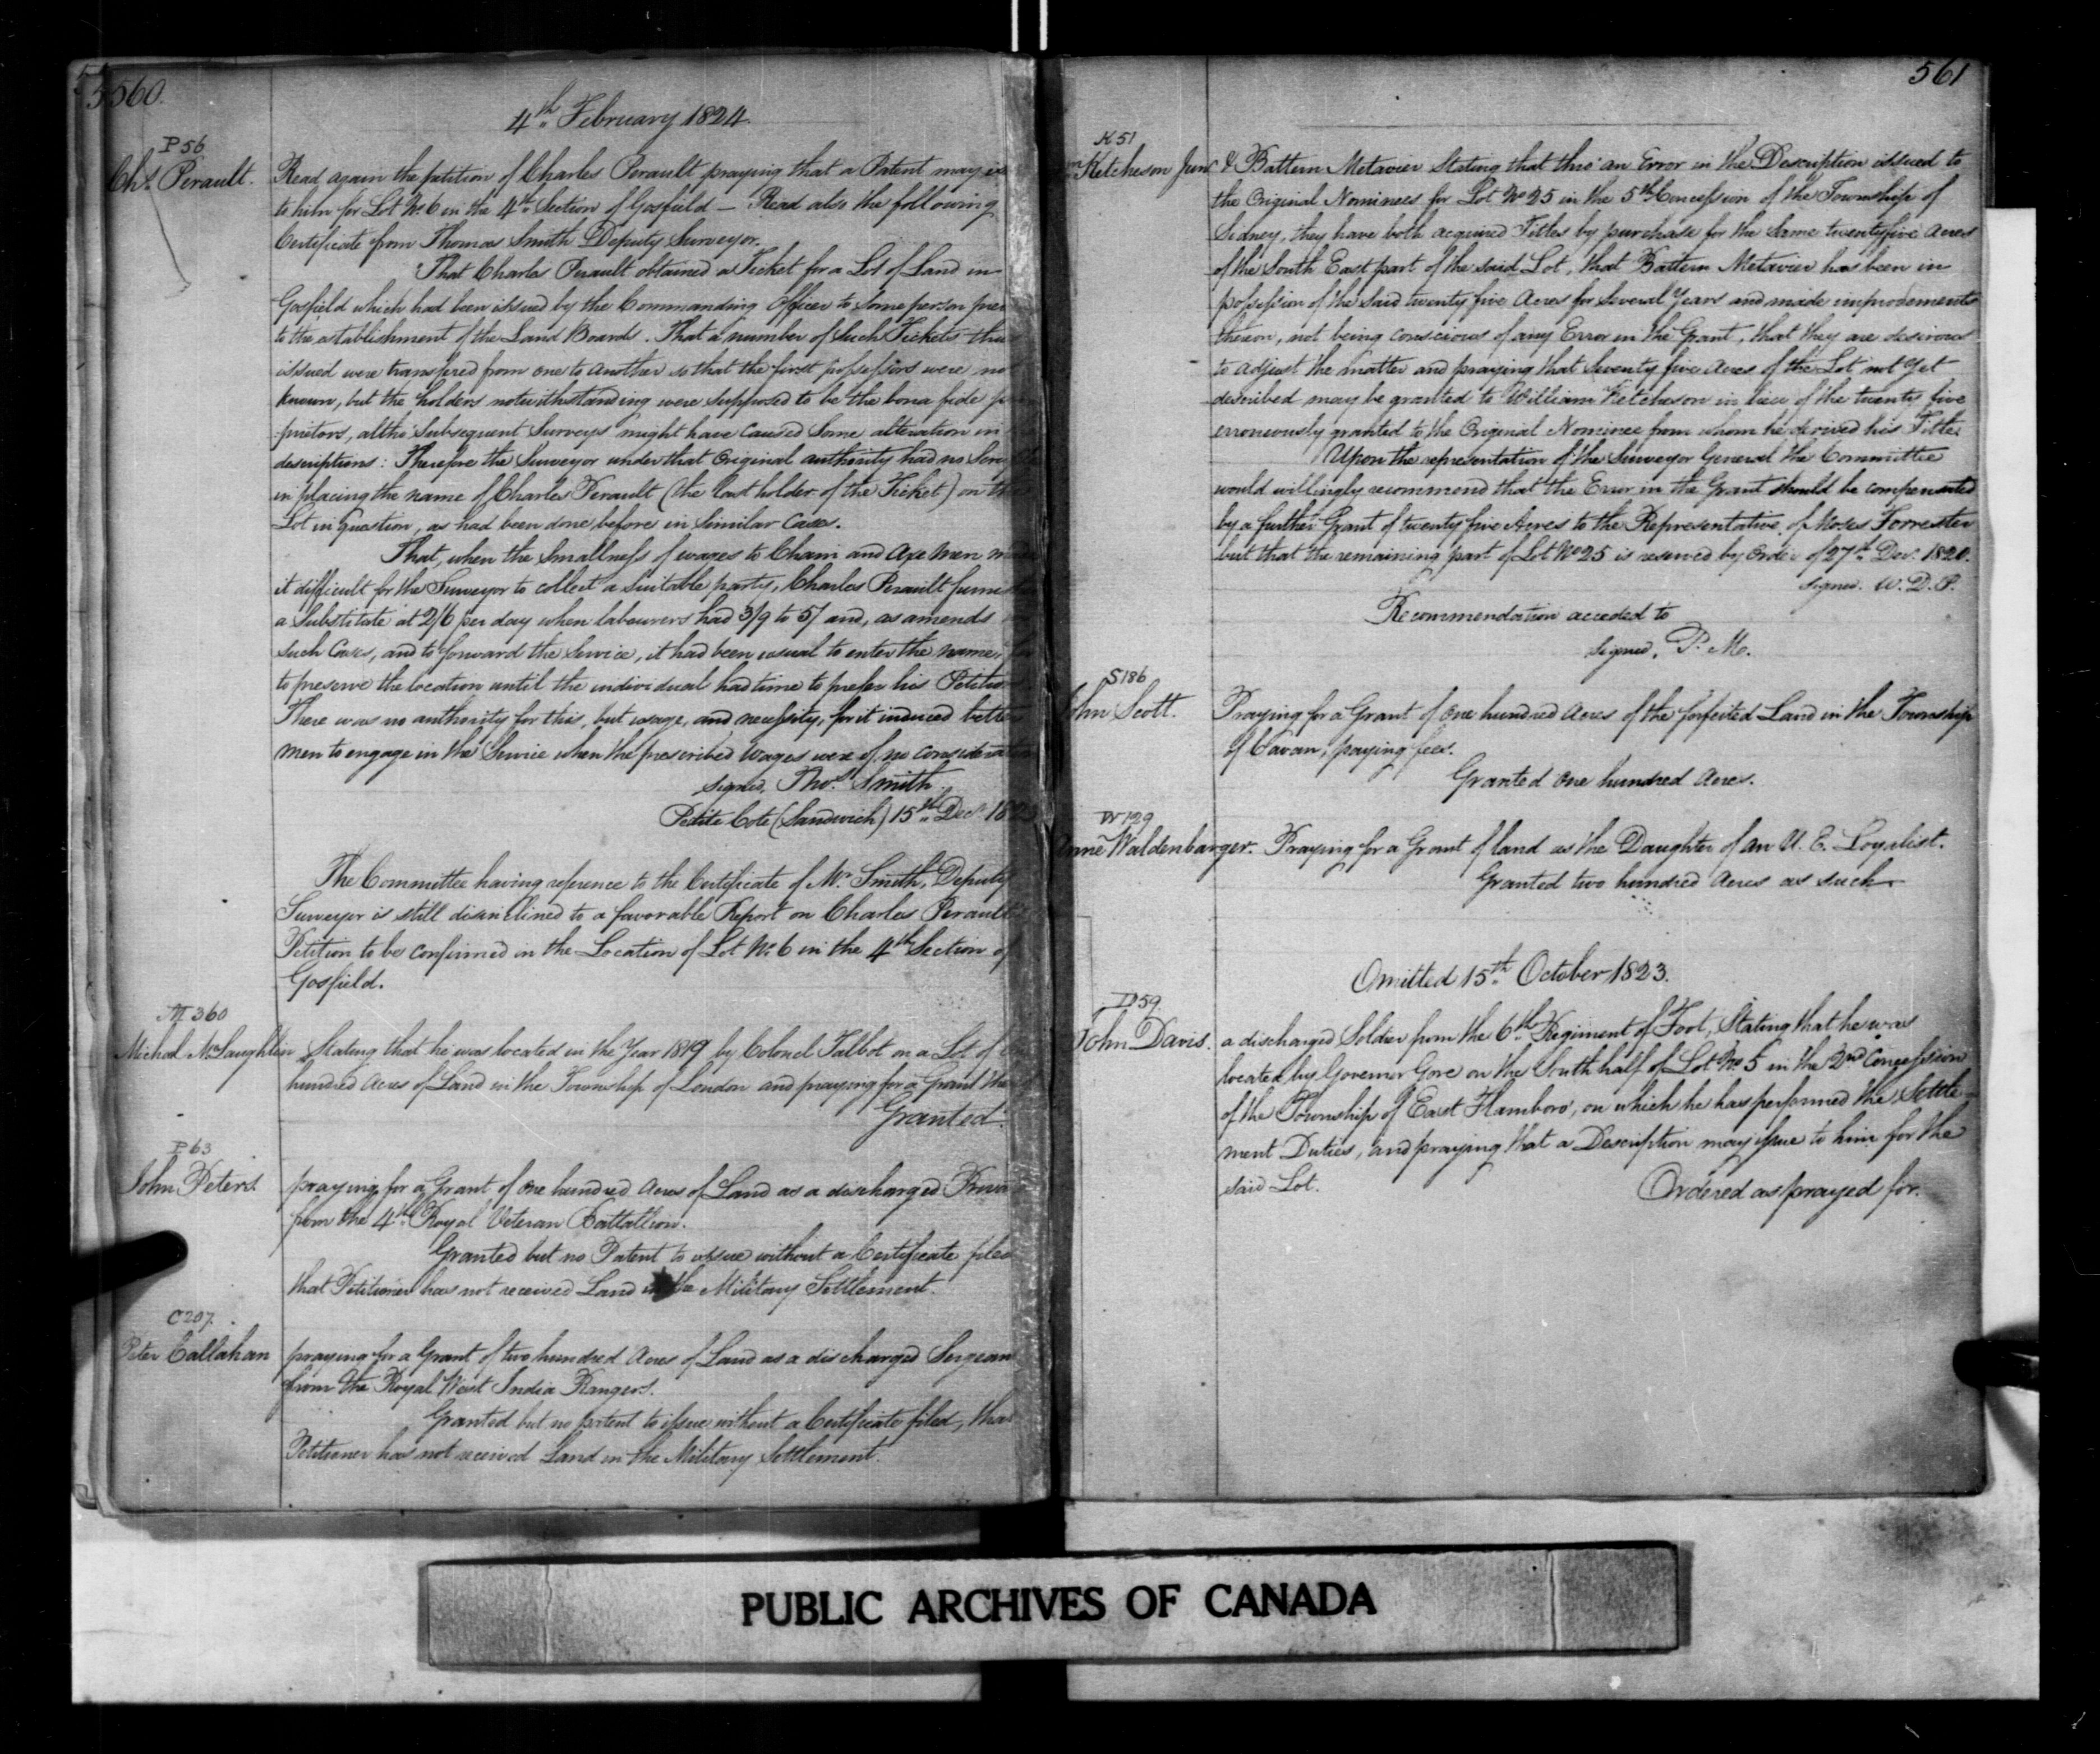 560.
4th February 1824.
P 56
Chs. Perault.
Read again the petition of Charles Perault praying that a Patent may
to him for Lot No. 6 in the 4th Section of Gosfield — Read also the following
Certificate from Thomas Smith Deputy Surveyor.
That Charles Perault obtained a Ticket for a Lot of Land in
Gosfield which had been issued by the Commanding Officer to some person
to the establishment of the Land Boards. That a number of such Tickets
issued were transfered from one to another so that the first possessors were
known, but the holders notwithstanding were supposed to be the bona fide
prietors, altho' subsequent Surveys might have caused some alteration in
descriptions: Therefore the Surveyor under that original authority had no
in placing the name of Charles Perault (the last holder of the Ticket) on
Lot in Question, as had been done before in similar Cases.
That, when the smallness of wages to Chain and Axe Men
it difficult for the Surveyor to collect a suitable party, Charles Perault
a Substitute at 2/6 per day when labourers had 3/9 to 5/ and, as amends
such Cases, and to forward the Service, it had been usual to enter the name,
to preserve the location until the individual had time to prefer his
There was no authority for this, but usage, and necessity, for it induced better
men to engage in the Service when the prescribed wages were of no
signed, Thos. Smith
Petite Cote (Sandwich) 15th Decr.
The Committee having reference to the Certificate of Mr. Smith, Deputy
Surveyor is still disinclined to a favorable Report on Charles Perault
Petition to be confirmed in the Location of Lot No. 6 in the 4th Section of
Gosfield.
M 360
Michael McLaughlin
Stating that he was located in the Year 1819 by Colonel Talbot on a Lot of
hundred Acres of Land in the Township of London and praying for a Grant
Granted.
P 63
John Peters.
praying for a Grant of one hundred Acres of Land as a discharged
from the 4th Royal Veteran Battallion.
Granted but no Patent to issue without a Certificate
that Petitioner has not received Land in the Military Settlement.
C 207.
Peter Callahan
praying for a Grant of two hundred Acres of Land as a discharged
from the Royal West India Rangers.
Granted but no patent to issue without a Certificate filed, that
Petitioner has not received Land in the Military Settlement.
561
K 51
Ketcheson Junr.
& Battern Metavier Stating that thro' an Error in the Description issued to
the Original Nominees for Lot No 25 in the 5th Concession of the Township of
Sidney, they have both acquired Titles by purchase for the same twenty five Acres
of the South East part of the said Lot, that Battern Metavier has been in
possession of the said twenty five Acres for several Years and made improvements
thereon, not being conscious of any Error in the Grant, that they are desirous
to adjust the matter and praying that Seventy five Acres of the Lot not yet
described may be granted to William Ketcheson in lieu of the twenty five
erroneously granted to the Original Nominee from whom he derived his Title.
Upon the representation of the Surveyor General the Committee
would willingly recommend that the Error in the Grant should be compensated
by a further Grant of twenty five Acres to the Representative of Moses Forrester
but that the remaining part of Lot No 25 is reserved by Order of 27th Decr. 1820.
signed. W. D. P.
Recommendation acceded to
signed, P. M.
S 186
John Scott.
Praying for a Grant of one hundred Acres of the forfeited Land in the Township
of Cavan, paying fees.
Granted One hundred Acres.
W 129
Anne Waldenbarger.
Praying for a Grant of land as the Daughter of an U. E. Loyalist.
Granted two hundred Acres as such
Omitted 15th October 1823.
D 59
John Davis.
a discharged Soldier from the 6th Regiment of Foot, Stating that he was
located by Governor Gore on the South half of Lot No. 5 in the 2nd Concession
of the Township of East Flamboro', on which he has performed the Settle-
ment Duties, and praying that a Description may issue to him for the
said Lot.
Ordered as prayed for.
PUBLIC ARCHIVES OF CANADA